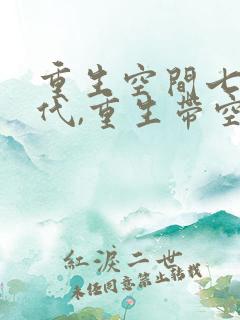 重生空間七
代,重生帶空
紅淚二世
未经同意禁止转载